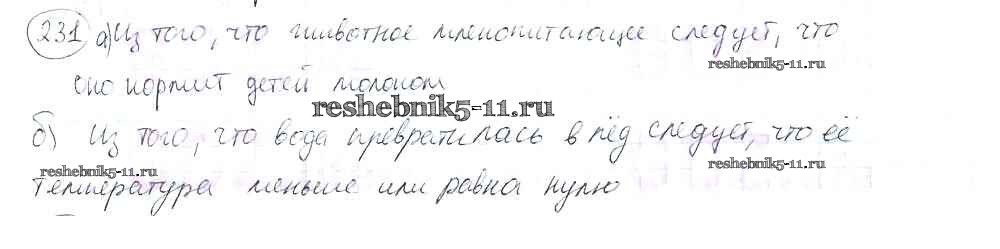 231 а) Из того, что животное млекопитающее следует, что
reshebnik5-11.ru
оно кормит детей молоком
reshebnik5-11.ru
б) Из того, что вода превратилась в лёд следует, что её
reshebnik5-11.ru
reshebnik5-11.ru
температура меньше или равна нулю